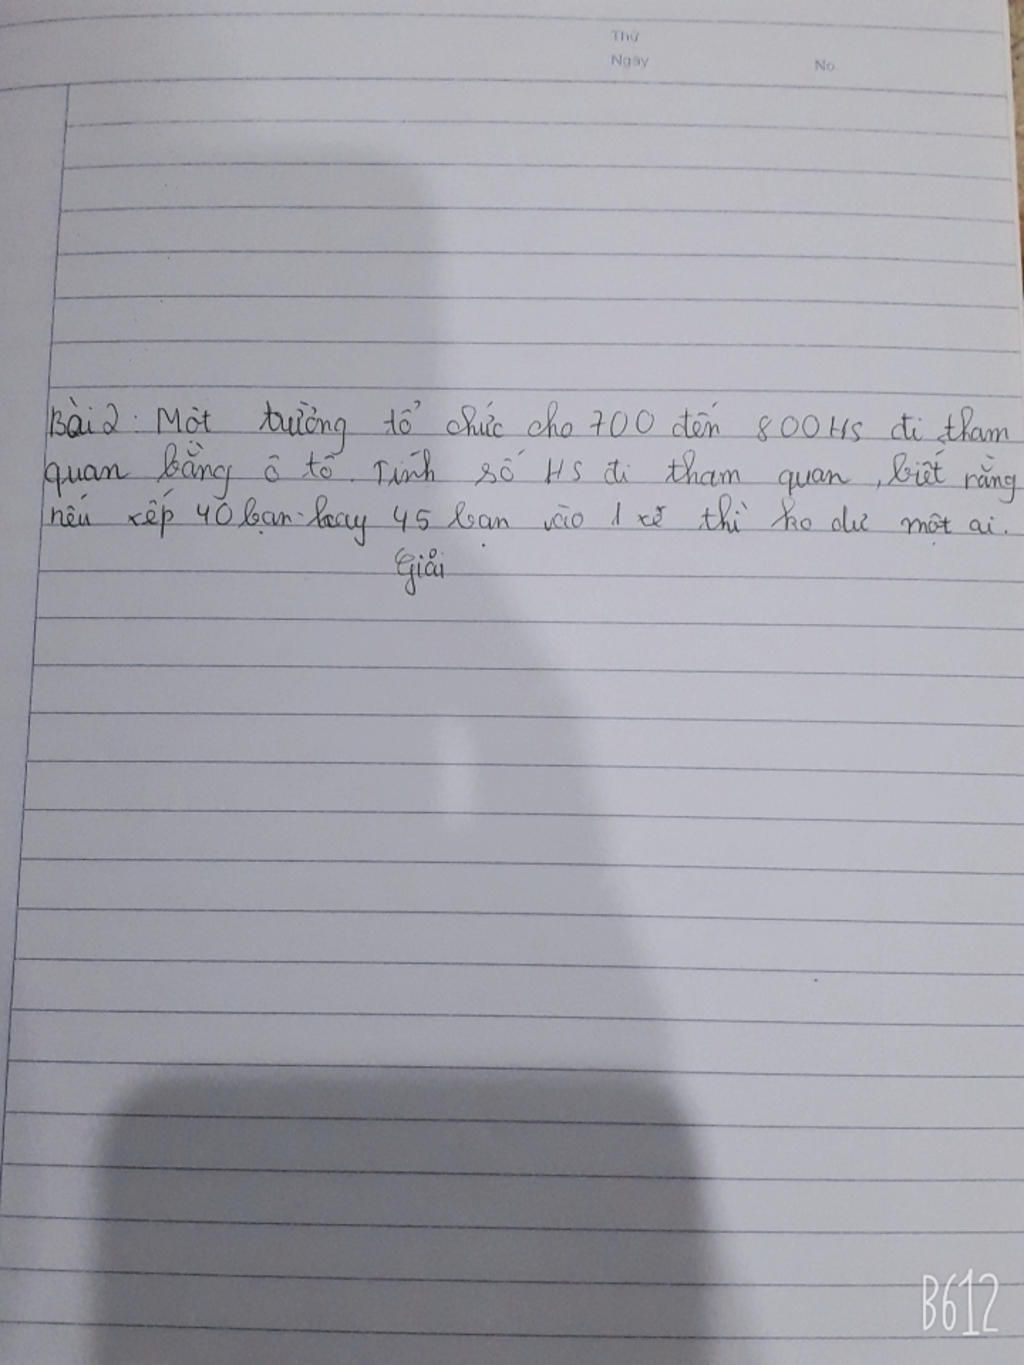 Thứ
Ngày No.
Bài 2: Một trường tổ chức cho 700 đến 800 HS đi tham
quan bằng ô tô. Tính số HS đi tham quan, biết rằng
nếu xếp 40 bạn hay 45 bạn vào 1 xe thì ko dư một ai.
Giải
B612